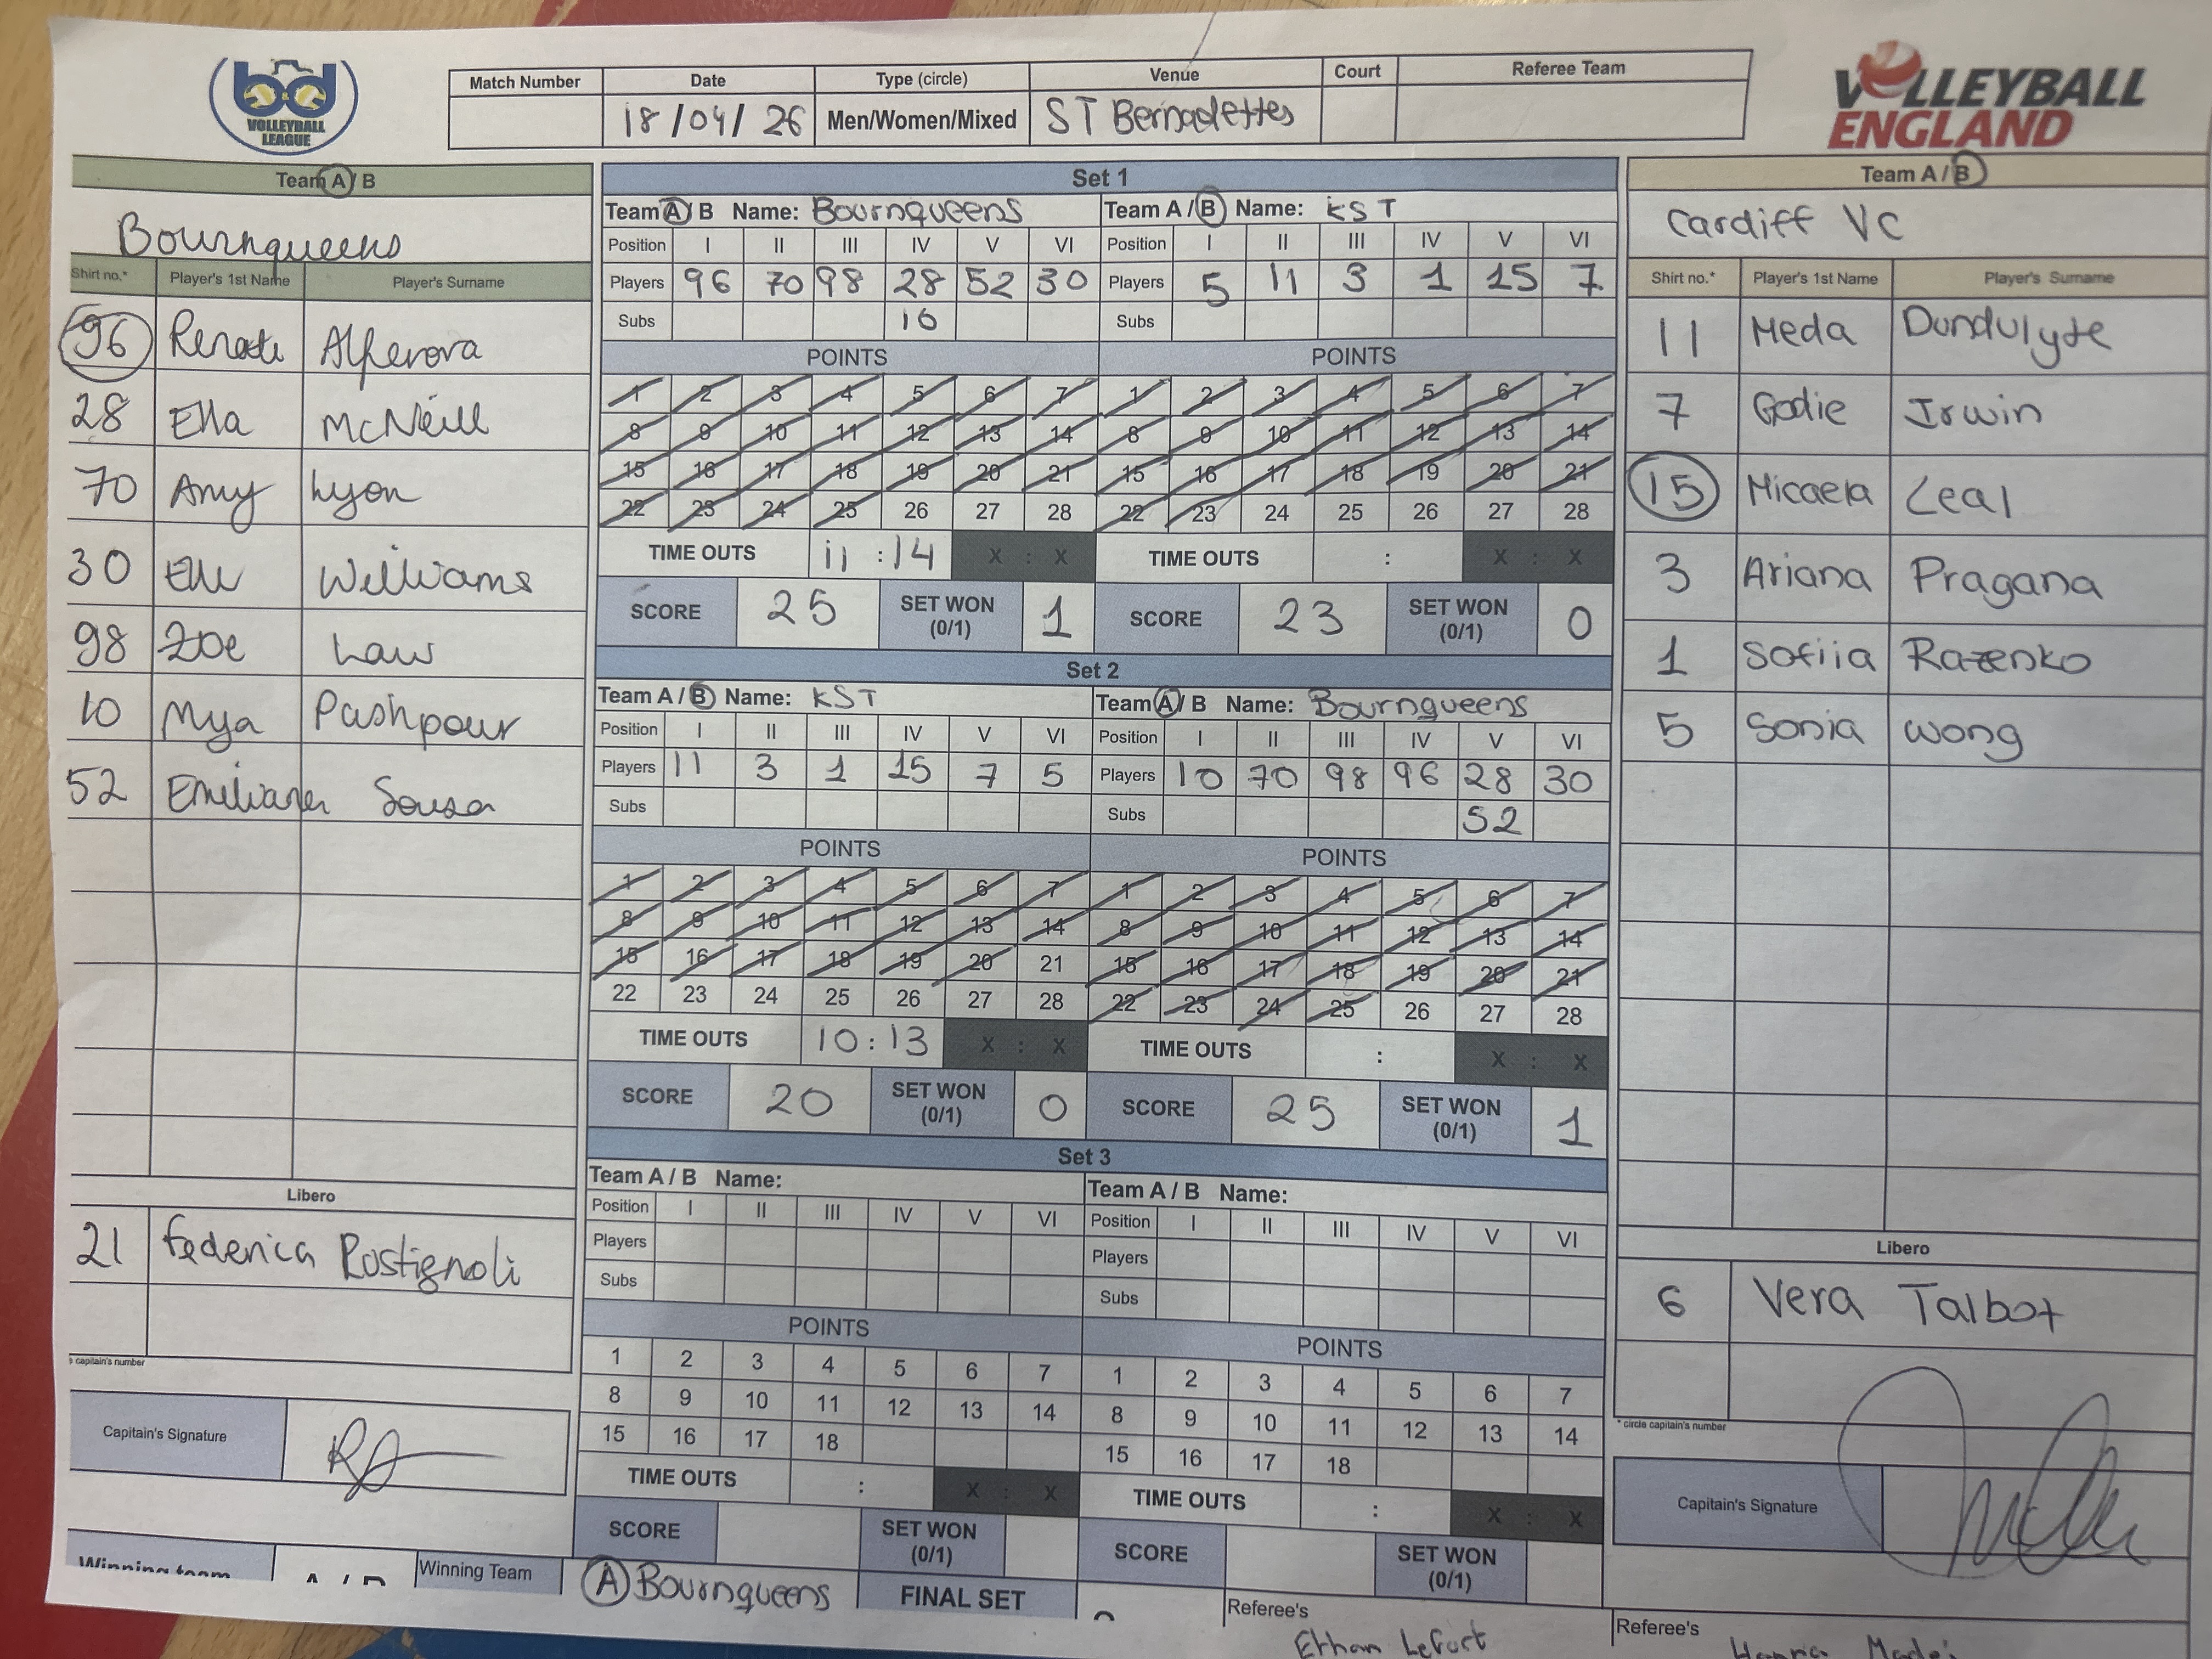 bd
VOLLEYBALL
LEAGUE
Match Number Date Type (circle) Venue Court Referee Team
18/04/26 Men/Women/Mixed ST Bernadettes
VOLLEYBALL
ENGLAND
Team A / B
Bournqueens
Shirt no.* Player's 1st Name Player's Surname
96 Renata Alferova
28 Ella McNeill
70 Amy Lyon
30 Elli Williams
98 Zoe Law
10 Mya Pashpour
52 Emiliana Sousa
Libero
21 Federica Rostignoli
s capitain's number
Capitain's Signature
Set 1
Team A / B Name: Bournqueens Team A / B Name: KST
Position I II III IV V VI Position I II III IV V VI
Players 96 70 98 28 52 30 Players 5 11 3 1 15 7
Subs 10 Subs
POINTS POINTS
1 2 3 4 5 6 7 1 2 3 4 5 6 7
8 9 10 11 12 13 14 8 9 10 11 12 13 14
15 16 17 18 19 20 21 15 16 17 18 19 20 21
22 23 24 25 26 27 28 22 23 24 25 26 27 28
TIME OUTS 11 : 14 X : X TIME OUTS : X : X
SCORE 25 SET WON (0/1) 1 SCORE 23 SET WON (0/1) 0
Set 2
Team A / B Name: KST Team A / B Name: Bournqueens
Position I II III IV V VI Position I II III IV V VI
Players 11 3 1 15 7 5 Players 10 70 98 96 28 30
Subs Subs 52
POINTS POINTS
1 2 3 4 5 6 7 1 2 3 4 5 6 7
8 9 10 11 12 13 14 8 9 10 11 12 13 14
15 16 17 18 19 20 21 15 16 17 18 19 20 21
22 23 24 25 26 27 28 22 23 24 25 26 27 28
TIME OUTS 10 : 13 X : X TIME OUTS : X : X
SCORE 20 SET WON (0/1) 0 SCORE 25 SET WON (0/1) 1
Set 3
Team A / B Name: Team A / B Name:
Position I II III IV V VI Position I II III IV V VI
Players Players
Subs Subs
POINTS POINTS
1 2 3 4 5 6 7 1 2 3 4 5 6 7
8 9 10 11 12 13 14 8 9 10 11 12 13 14
15 16 17 18 15 16 17 18
TIME OUTS : X : X TIME OUTS : X : X
SCORE SET WON (0/1) SCORE SET WON (0/1)
Team A / B
Cardiff VC
Shirt no.* Player's 1st Name Player's Surname
11 Meda Dundulyte
7 Godie Irwin
15 Micaela Leal
3 Ariana Pragana
1 Sofiia Razenko
5 Sonia Wong
Libero
6 Vera Talbot
* circle capitain's number
Capitain's Signature
Winning team A / B Winning Team A Bournqueens FINAL SET Referee's Ethan Lefort Referee's